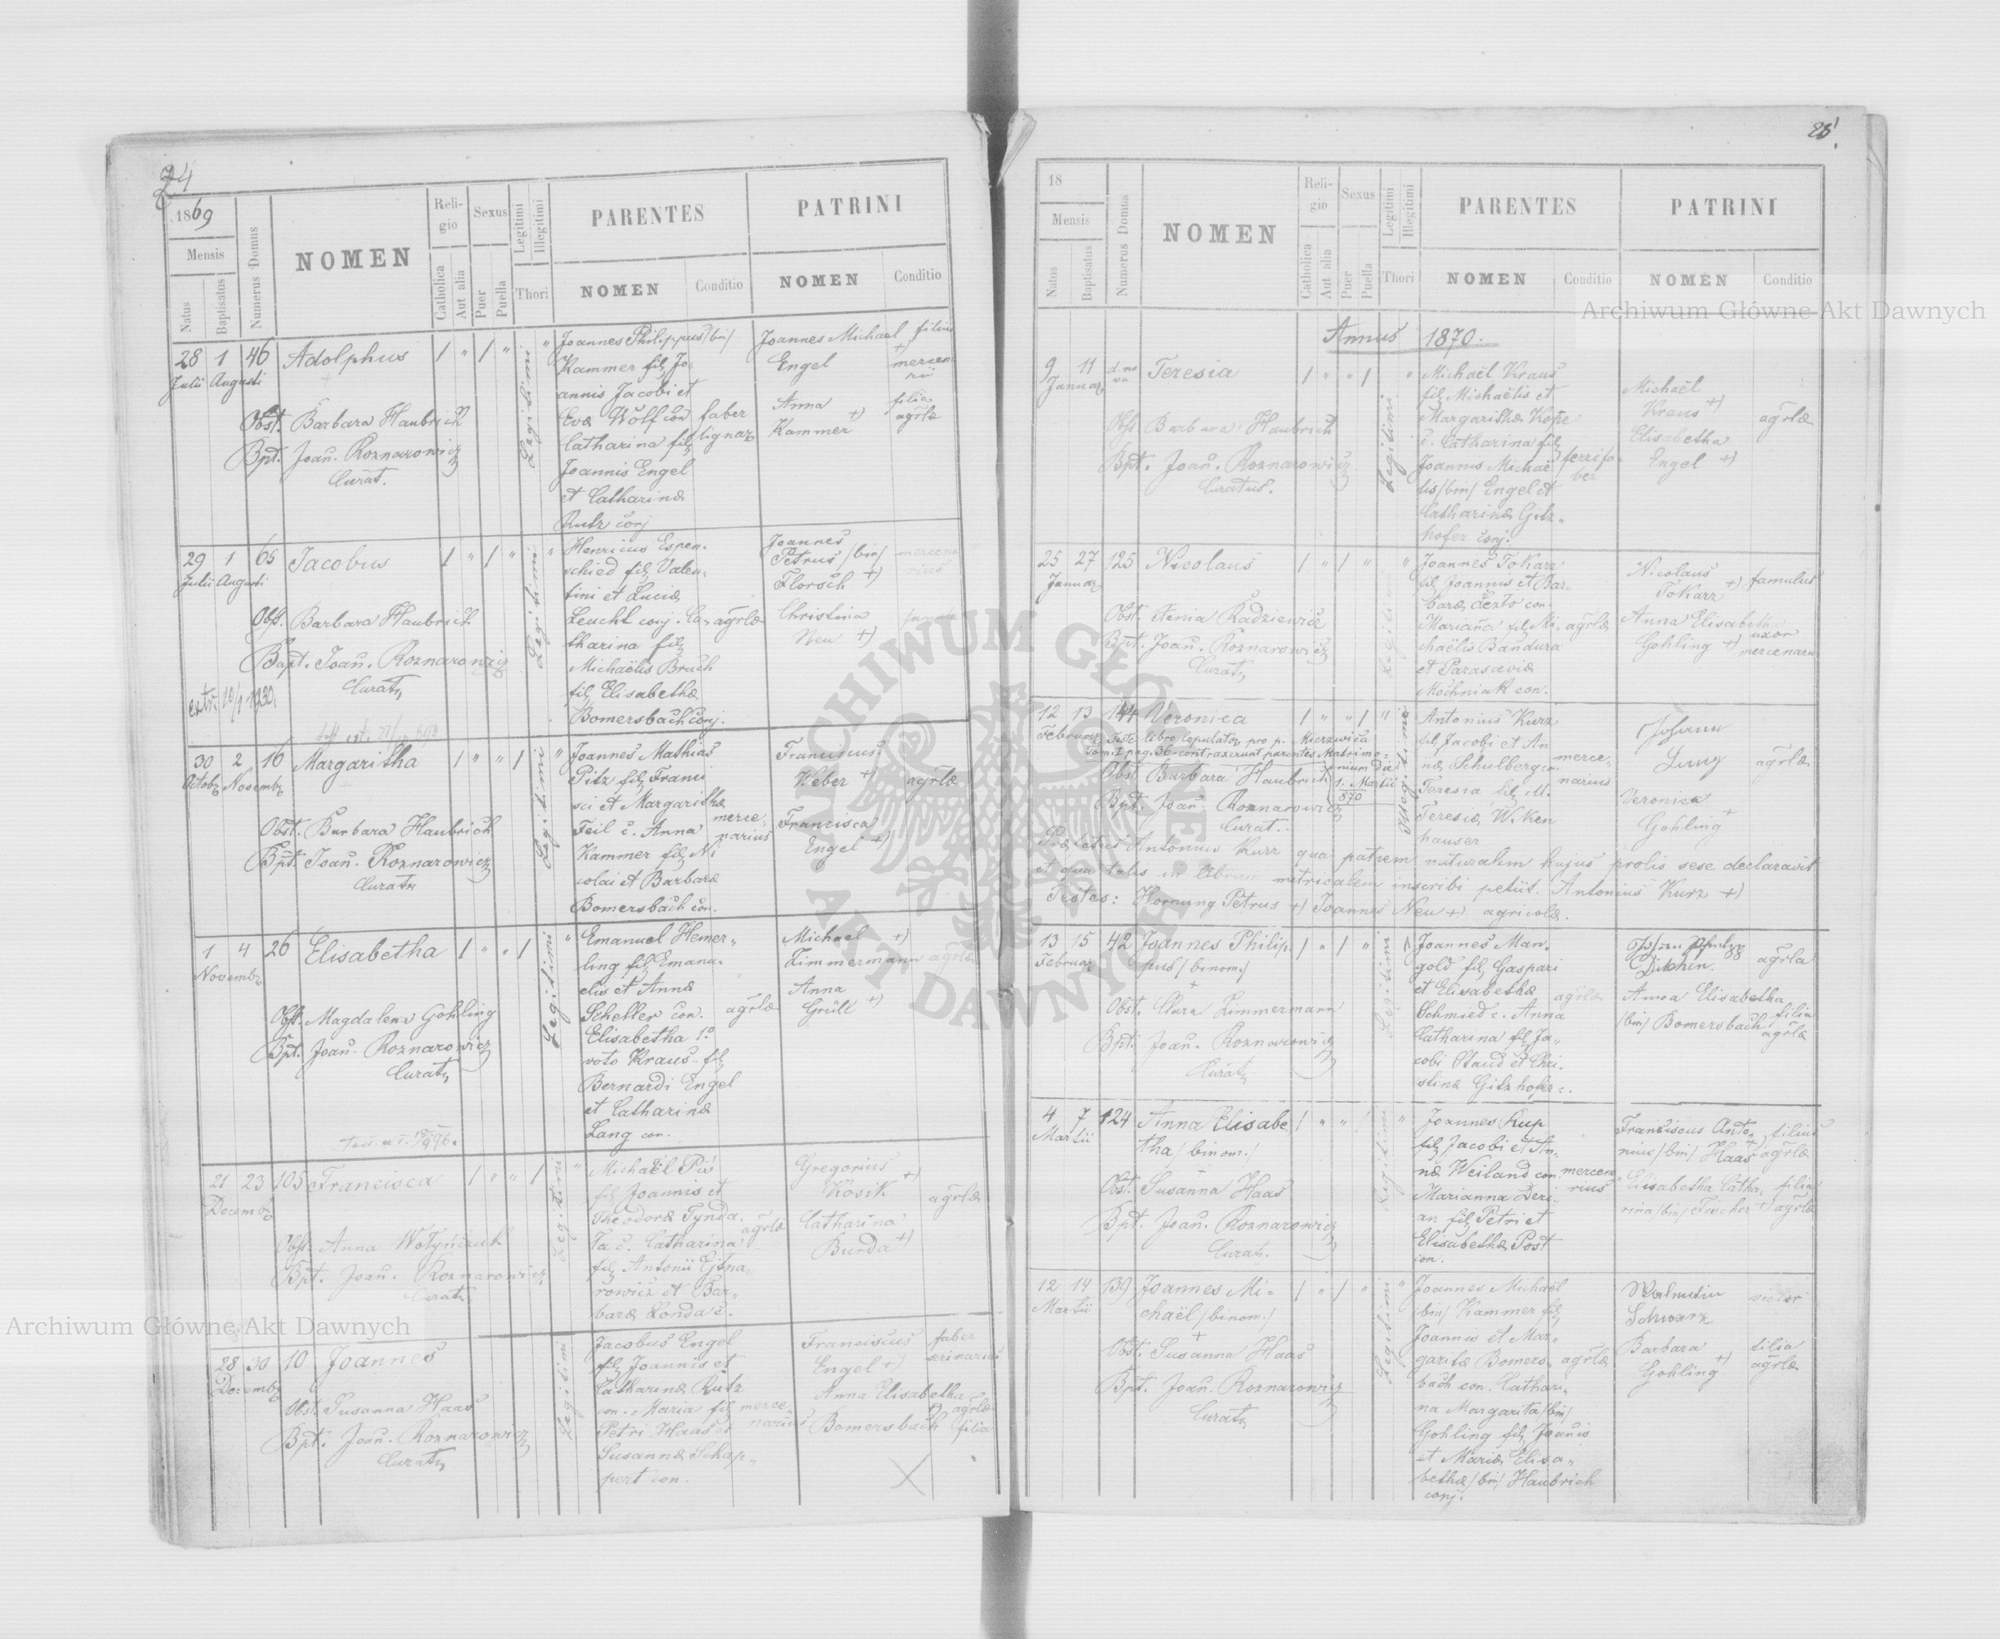 24
1869
Mensis
Natus
Baptisatus
Numerus Domus
NOMEN
Religio
Catholica
Aut alia
Sexus
Puer
Puella
Legitimi
Illegitimi
Thori
PARENTES
NOMEN
Conditio
PATRINI
NOMEN
Conditio
28 1 46 Adolphus
Julii Augusti
Obst. Barbara Haubrich
Bpt. Joan. Roznarowicz
Curat.
Legitimi
Joannes Philippus /bin/
Kammer fil. Jo-
annis Jacobi et
Evae Wolf con
Catharina fil.
Joannis Engel
et Catharinae
Rutz conj
faber
lignar.
Joannes Michael
Engel +
filius
mercen
rii
Anna
Kammer +)
filia
agrlae
29 1 65 Jacobus
Julii Augusti
Obst. Barbara Haubrich
Bapt. Joan. Roznarowicz
Curat.
extr. 10/9 1930.
Legitimi
Henricus Espen-
schied fil. Valen-
tini et Luciae
Leucht conj. Ca-
tharina fil.
Michaëlis Bruch
fil. Elisabethae
Bomersbach conj.
agrlae
Joannes
Petrus /bin/
Florsch +)
mercena
rius
Christina
Neu +)
30 2 16 Margaritha
Octob. Novemb.
Obst. Barbara Haubrich
Bpt. Joan. Roznarowicz
Curat.
Legitimi
Joannes Mathias
Pitz fil. Franci
sci et Margarithae
Feil c. Anna
Kammer fil. Ni
colai et Barbarae
Bomersbach con.
merce-
narius
Franciscus
Weber +)
Francisca
Engel +)
agrlae
1 4 26 Elisabetha
Novemb.
Obst. Magdalena Gohling
Bpt. Joan. Roznarowicz
Curat.
Legitimi
Emanuel Hemer-
ling fil. Emanu-
elis et Annae
Scheller con.
Elisabetha 1o
voto Kraus fil.
Bernardi Engel
et Catharinae
Lang con.
agrlae
Michael +)
Zimmermann
agrlae
Anna
Grüll +)
21 23 105 Francisca
Decemb.
Obst. Anna Wołyńczuk
Bpt. Joan. Roznarowicz
Curat.
Legitimi
Michaël Piś
fil. Joannis et
Theodorae Tynda.
Ta c. Catharina
fil. Antonii
rowicz et Bar-
barae Londa c.
agrlae
Gregorius
Kosik +)
Catharina
Burda +)
agrlae
28 30 10 Joannes
Decemb.
Obst. Susanna Haas
Bpt. Joan. Roznarowicz
Curat.
Legitimi
Jacobus Engel
fil. Joannis et
Catharinae Rutz
con. Maria fil.
Petri Haas et
Susannae Schap-
pert con.
merce-
narius
Franciscus
Engel +)
faber
Anna Elisabetha
Bomersbach +)
agrlae
filia
25!
18
Mensis
Natus
Baptisatus
Numerus Domus
NOMEN
Religio
Catholica
Aut alia
Sexus
Puer
Puella
Legitimi
Illegitimi
Thori
PARENTES
NOMEN
Conditio
PATRINI
NOMEN
Conditio
Annus 1870.
9 11 Teresia
Januar.
Obst. Barbara Haubrich
Bpt. Joan. Roznarowicz
Curatus.
Legitimi
Michaël Kraus
fil. Michaëlis et
Margarithae
c. Catharina fil.
Joannis Michaë
lis /bin/ Engel et
Catharinae Gitz-
hofer conj.
Michaël
Kraus +)
Elisabetha
Engel +)
agrlae
25 27 125 Nicolaus
Januar.
Obst. Xenia Radziewicz
Bpt. Joan. Roznarowicz
Curat.
Legitimi
Joannes Tokarz
fil. Joannis et Bar-
barae Lexto con.
Marianna fil. Mi-
chaëlis Bandura
et Parasceviae
Mochniak con.
agrlae
Nicolaus
Tokarz +)
famulus
Anna Elisabetha
Gohling +)
uxor
mercenarii
12 13 144 Veronica
Februar.
Teste libro copulator. pro p. Mierzwica
Tom. I pag. 36 contraxerunt parentes Matrimo-
nium die
1. Martii
870
Obst. Barbara Haubrich
Bpt. Joan. Roznarowicz
Curat.
Illegitimi
Antonius Kurz
fil. Jacobi et An
nae Schulberg con
Teresia fil. M.
Teresiae Wiken
hauser
merce-
narius
Johann
Jung
agrlae
Veronica
Gohling +
Praefatus Antonius Kurz qua patrem naturalem hujus prolis sese declaravit
et qua talis in librum metricalem inscribi petiit. Antonius Kurz +)
Testes: Hornung Petrus +) Joannes Neu +) agricolae.
13 15 42 Joannes Philip-
Februar.
pus /binom./
Obst. Clara Zimmermann
Bpt. Joan. Roznarowicz
Curat.
Legitimi
Joannes Man-
gold fil. Gaspari
et Elisabethae
Schmied c. Anna
Catharina fil. Ja-
cobi Staud et Chri-
stinae Gitzhofer c.
agrlae
Johan Philipp
agrla
Anna Elisabetha
/bin/ Bomersbach
filia
agrlae
4 7 124 Anna Elisabe
Martii
tha /binom./
Obst. Susanna Haas
Bpt. Joan. Roznarowicz
Curat.
Legitimi
Joannes Kup
fil. Jacobi et An-
nae Weiland con.
Marianna Deri-
an fil. Petri et
Elisabethae Post
con.
mercena
rius
Franciscus Anto-
nius /bin/ Haas +)
filius
agrlae
Elisabetha Catha-
rina /bin/ Fischer +)
filia
agrlae
12 14 139 Joannes Mi-
Martii
chaël /binom./
Obst. Susanna Haas
Bpt. Joan. Roznarowicz
Curat.
Legitimi
Joannes Michaël
/bin/ Kammer fil.
Joannis et Mar-
garitae Bomers-
bach con. Cathari-
na Margarita /bin/
Gohling fil. Joannis
et Mariae Elisa-
bethae /bin/ Haubrich
conj.
agrlae
Walentin
Schwarz
Barbara
Gohling +)
filia
agrlae
Archiwum Główne Akt Dawnych
Archiwum Główne Akt Dawnych
ARCHIWUM GŁÓWNE AKT DAWNYCH